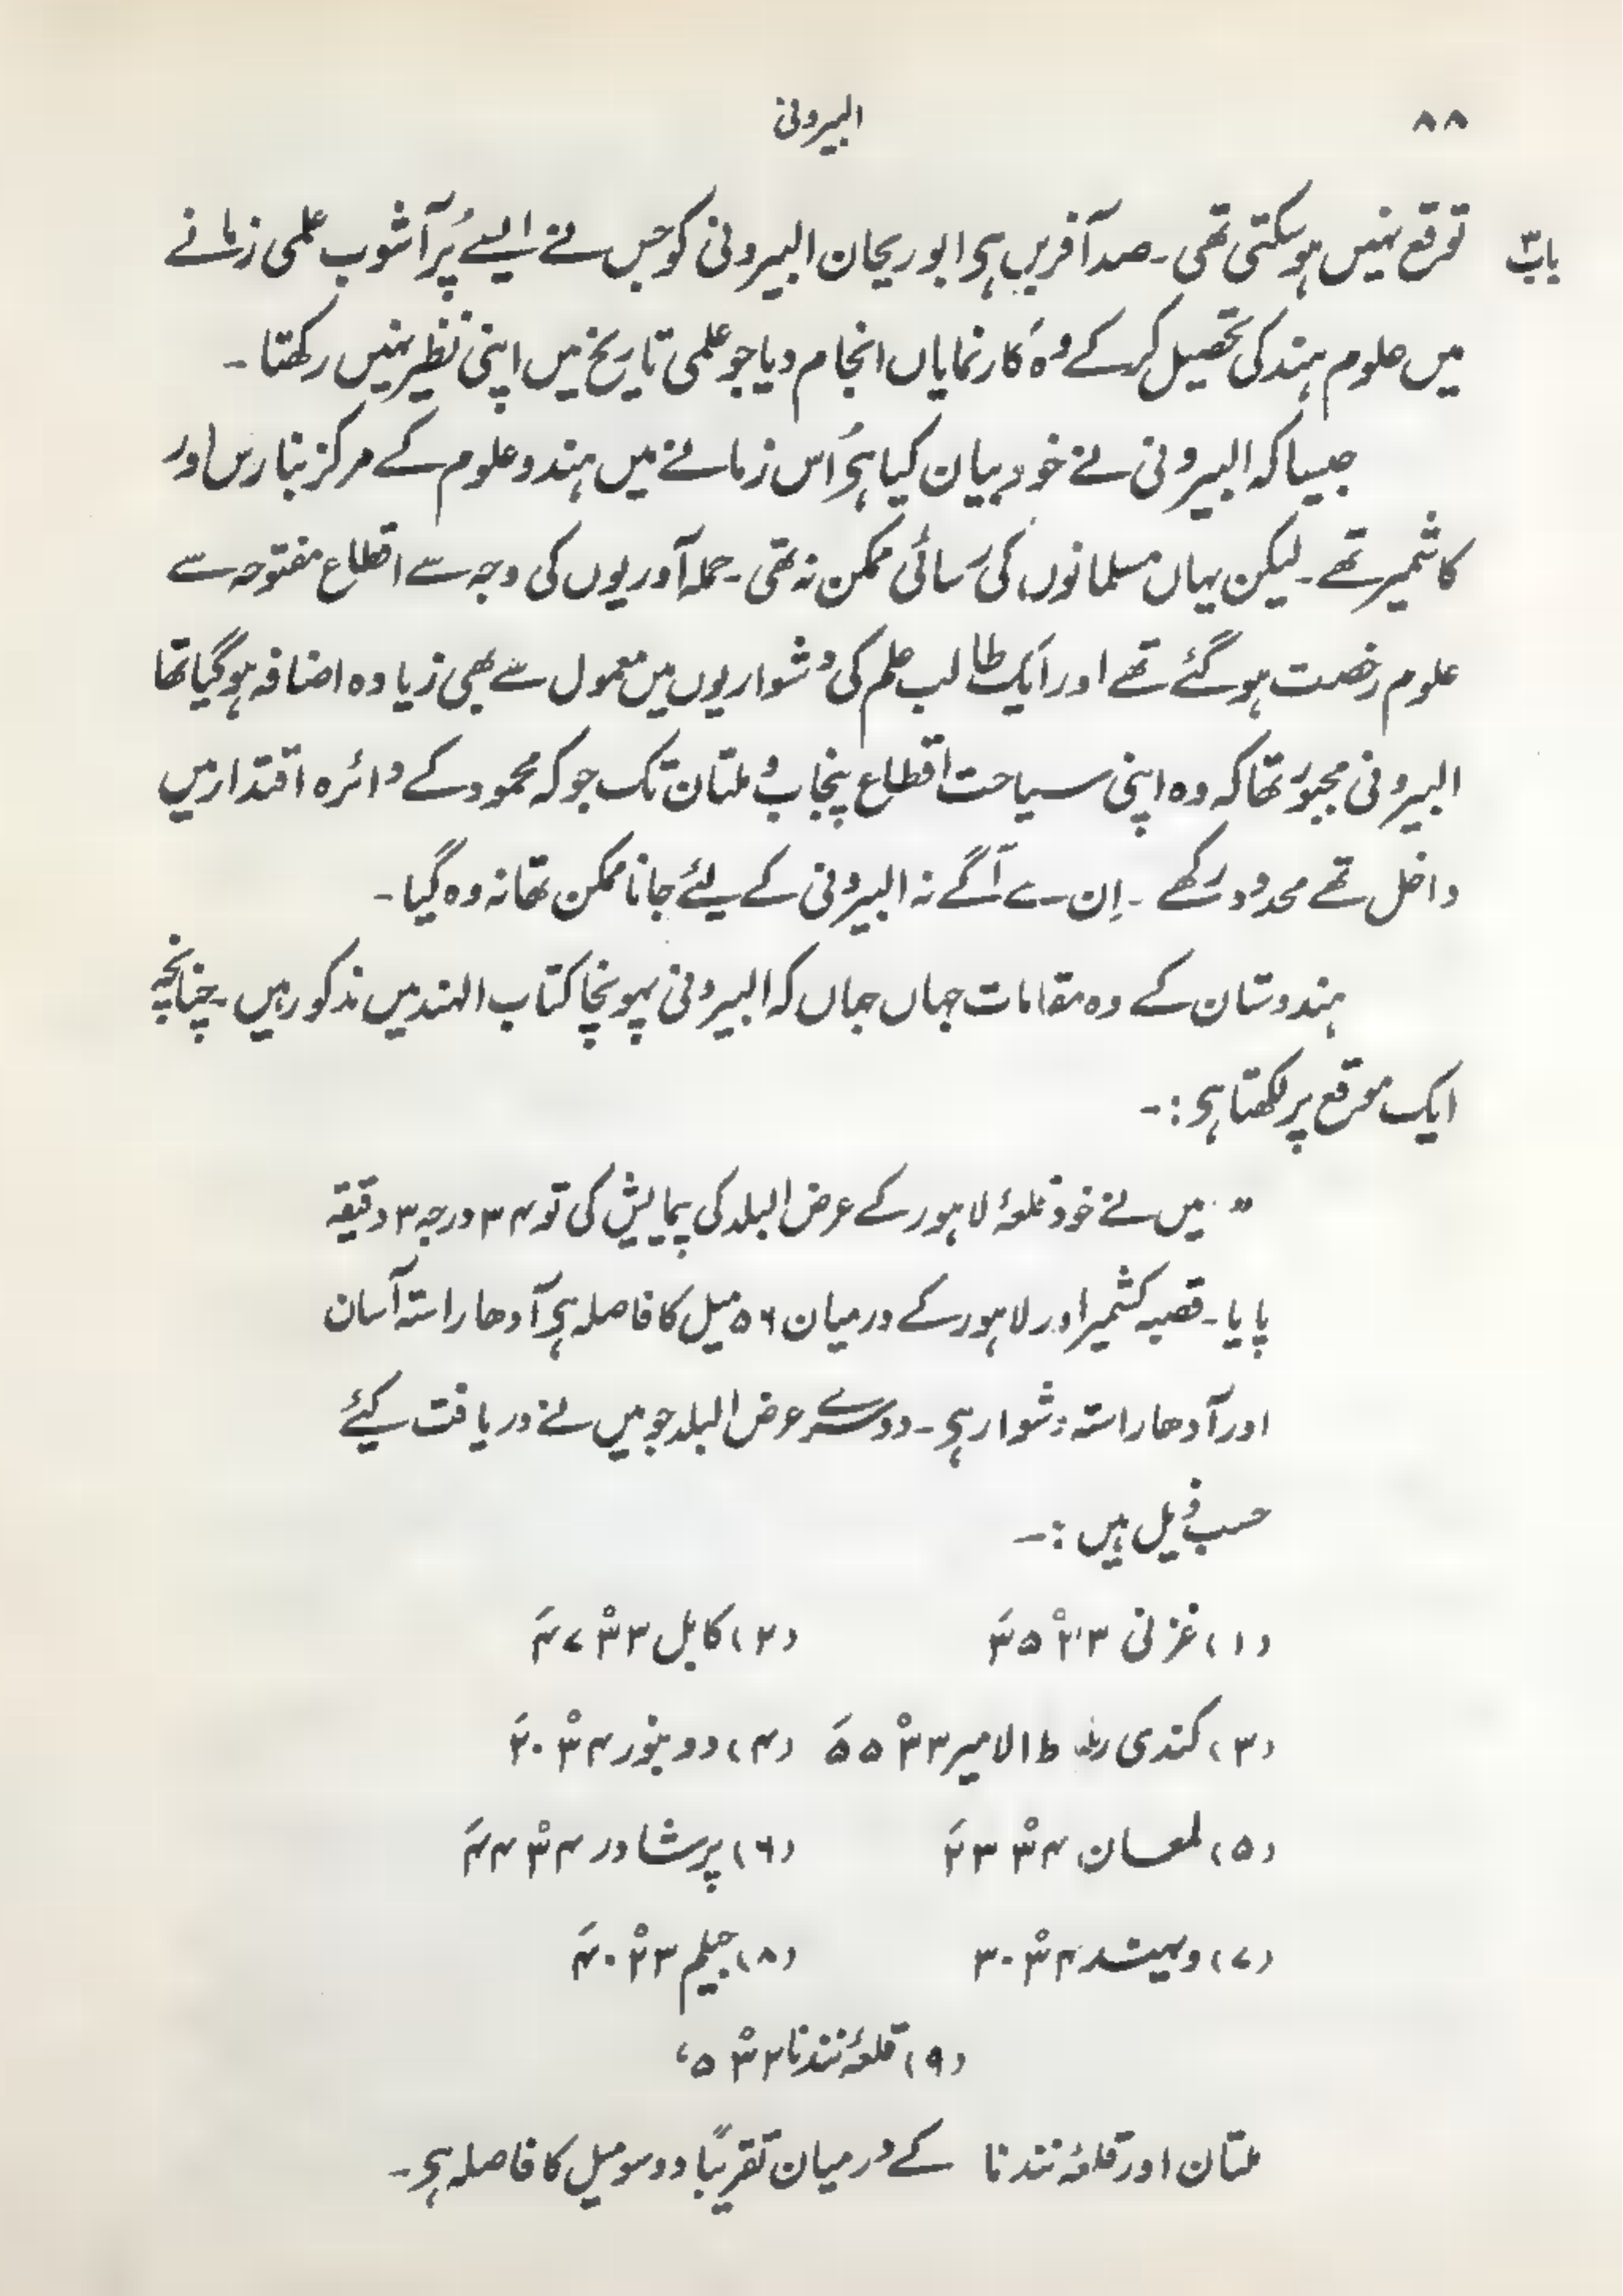 ۸۸
البیرونی
باب۳
توقع نہیں ہوسکتی تھی۔ صد آفریں ہی ابوریحان البیرونی کو جس نے ایسے پُر آشوب علمی زمانے
میں علوم ہند کی تحصیل کرکے وہ کارنمایاں انجام دیا جو علمی تاریخ میں اپنی نظیر نہیں رکھتا ۔
جیسا کہ البیرونی نے خود بیان کیا ہی اُس زمانے میں ہندو علوم کے مرکز بنارس اور
کاشمیر تھے ۔ لیکن یہاں مسلمانوں کی رسائی ممکن نہ تھی ۔ حملہ آوریوں کی وجہ سے اقطاع مفتوحہ سے
علوم رخصت ہوگئے تھے اور ایک طالب علم کی دشواریوں میں معمول سے بھی زیادہ اضافہ ہوگیا تھا
البیرونی مجبور تھا کہ وہ اپنی سیاحت اقطاع پنجاب و ملتان تک جو کہ محمود کے دائرہ اقتدار میں
داخل تھے محدود رکھے ۔ اِن سے آگے نہ البیرونی کے لیئے جانا ممکن تھا نہ وہ گیا ۔
ہندوستان کے وہ مقامات جہاں جہاں کہ البیرونی پہونچا کتاب الہند میں مذکور ہیں ۔ چنانچہ
ایک موقع پر لکھتا ہی :۔
” میں نے خود قلعۂ لاہور کے عرض البلد کی پیمایش کی تو ۳۴ درجہ ۳ دقیقہ
پایا ۔ قصبہ کشمیر اور لاہور کے درمیان ۵۶ میل کا فاصلہ ہی آدھا راستہ آسان
اور آدھا راستہ دشوار ہی ۔ دوسرے عرض البلد جو میں نے دریافت کیئے
حسب ذیل ہیں :۔
(۱) غزنی ۳۳ْ ۳۵َ (۲) کابل ۳۳ْ ۴۷َ
(۳) کندی رباط الامیر ۳۳ْ ۵۵َ (۴) دونپور ۳۴ْ ۲۰َ
(۵) لمغان ۳۴ْ ۴۳َ (۶) پرشاور ۳۴ْ ۴۴َ
(۷) وہیند ۳۴ْ ۳۰ (۸) جہیلم ۳۳ْ ۲۰َ
(۹) قلعۂ نندنا ۳۲ْ ۵،
ملتان اور قلعۂ نندنا کے درمیان تقریبًا دو سو میل کا فاصلہ ہی ۔